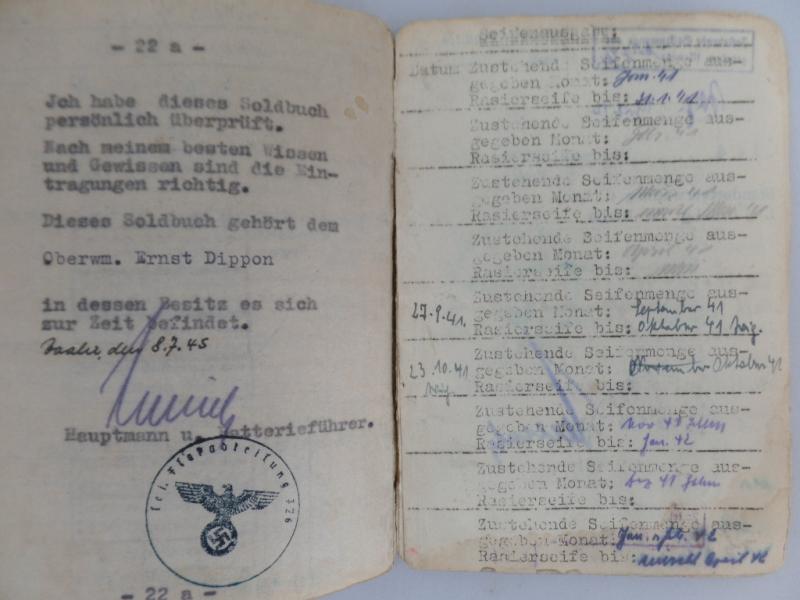 - 22 a -
Jch habe dieses Soldbuch
persönlich überprüft.
Nach meinem besten Wissen
und Gewissen sind die Ein-
tragungen richtig.
Dieses Soldbuch gehört dem
Oberwm. Ernst Dippon
in dessen Besitz es sich
zur Zeit befindet.
den 8.7.45
Hauptmann u. Batterieführer.
Flakabteilung 726
- 22 a -
Seifenausgabe:
Datum Zustehende Seifenmenge aus-
gegeben Monat: Jan. 41
Rasierseife bis: 31.1.41
Zustehende Seifenmenge aus-
gegeben Monat:
Rasierseife bis:
Zustehende Seifenmenge aus-
gegeben Monat: März 41
Rasierseife bis:
Zustehende Seifenmenge aus-
gegeben Monat: April 41
Rasierseife bis:
27.9.41. Zustehende Seifenmenge aus-
gegeben Monat: September 41
Rasierseife bis: Oktober 41
23.10.41 Zustehende Seifenmenge aus-
gegeben Monat: Oktober 41
Rasierseife bis:
Zustehende Seifenmenge aus-
gegeben Monat: Nov 41
Rasierseife bis: Jan. 42
Zustehende Seifenmenge aus-
gegeben Monat: Dez 41
Rasierseife bis:
Zustehende Seifenmenge aus-
gegeben Monat: Jan. 42
Rasierseife bis: April 42